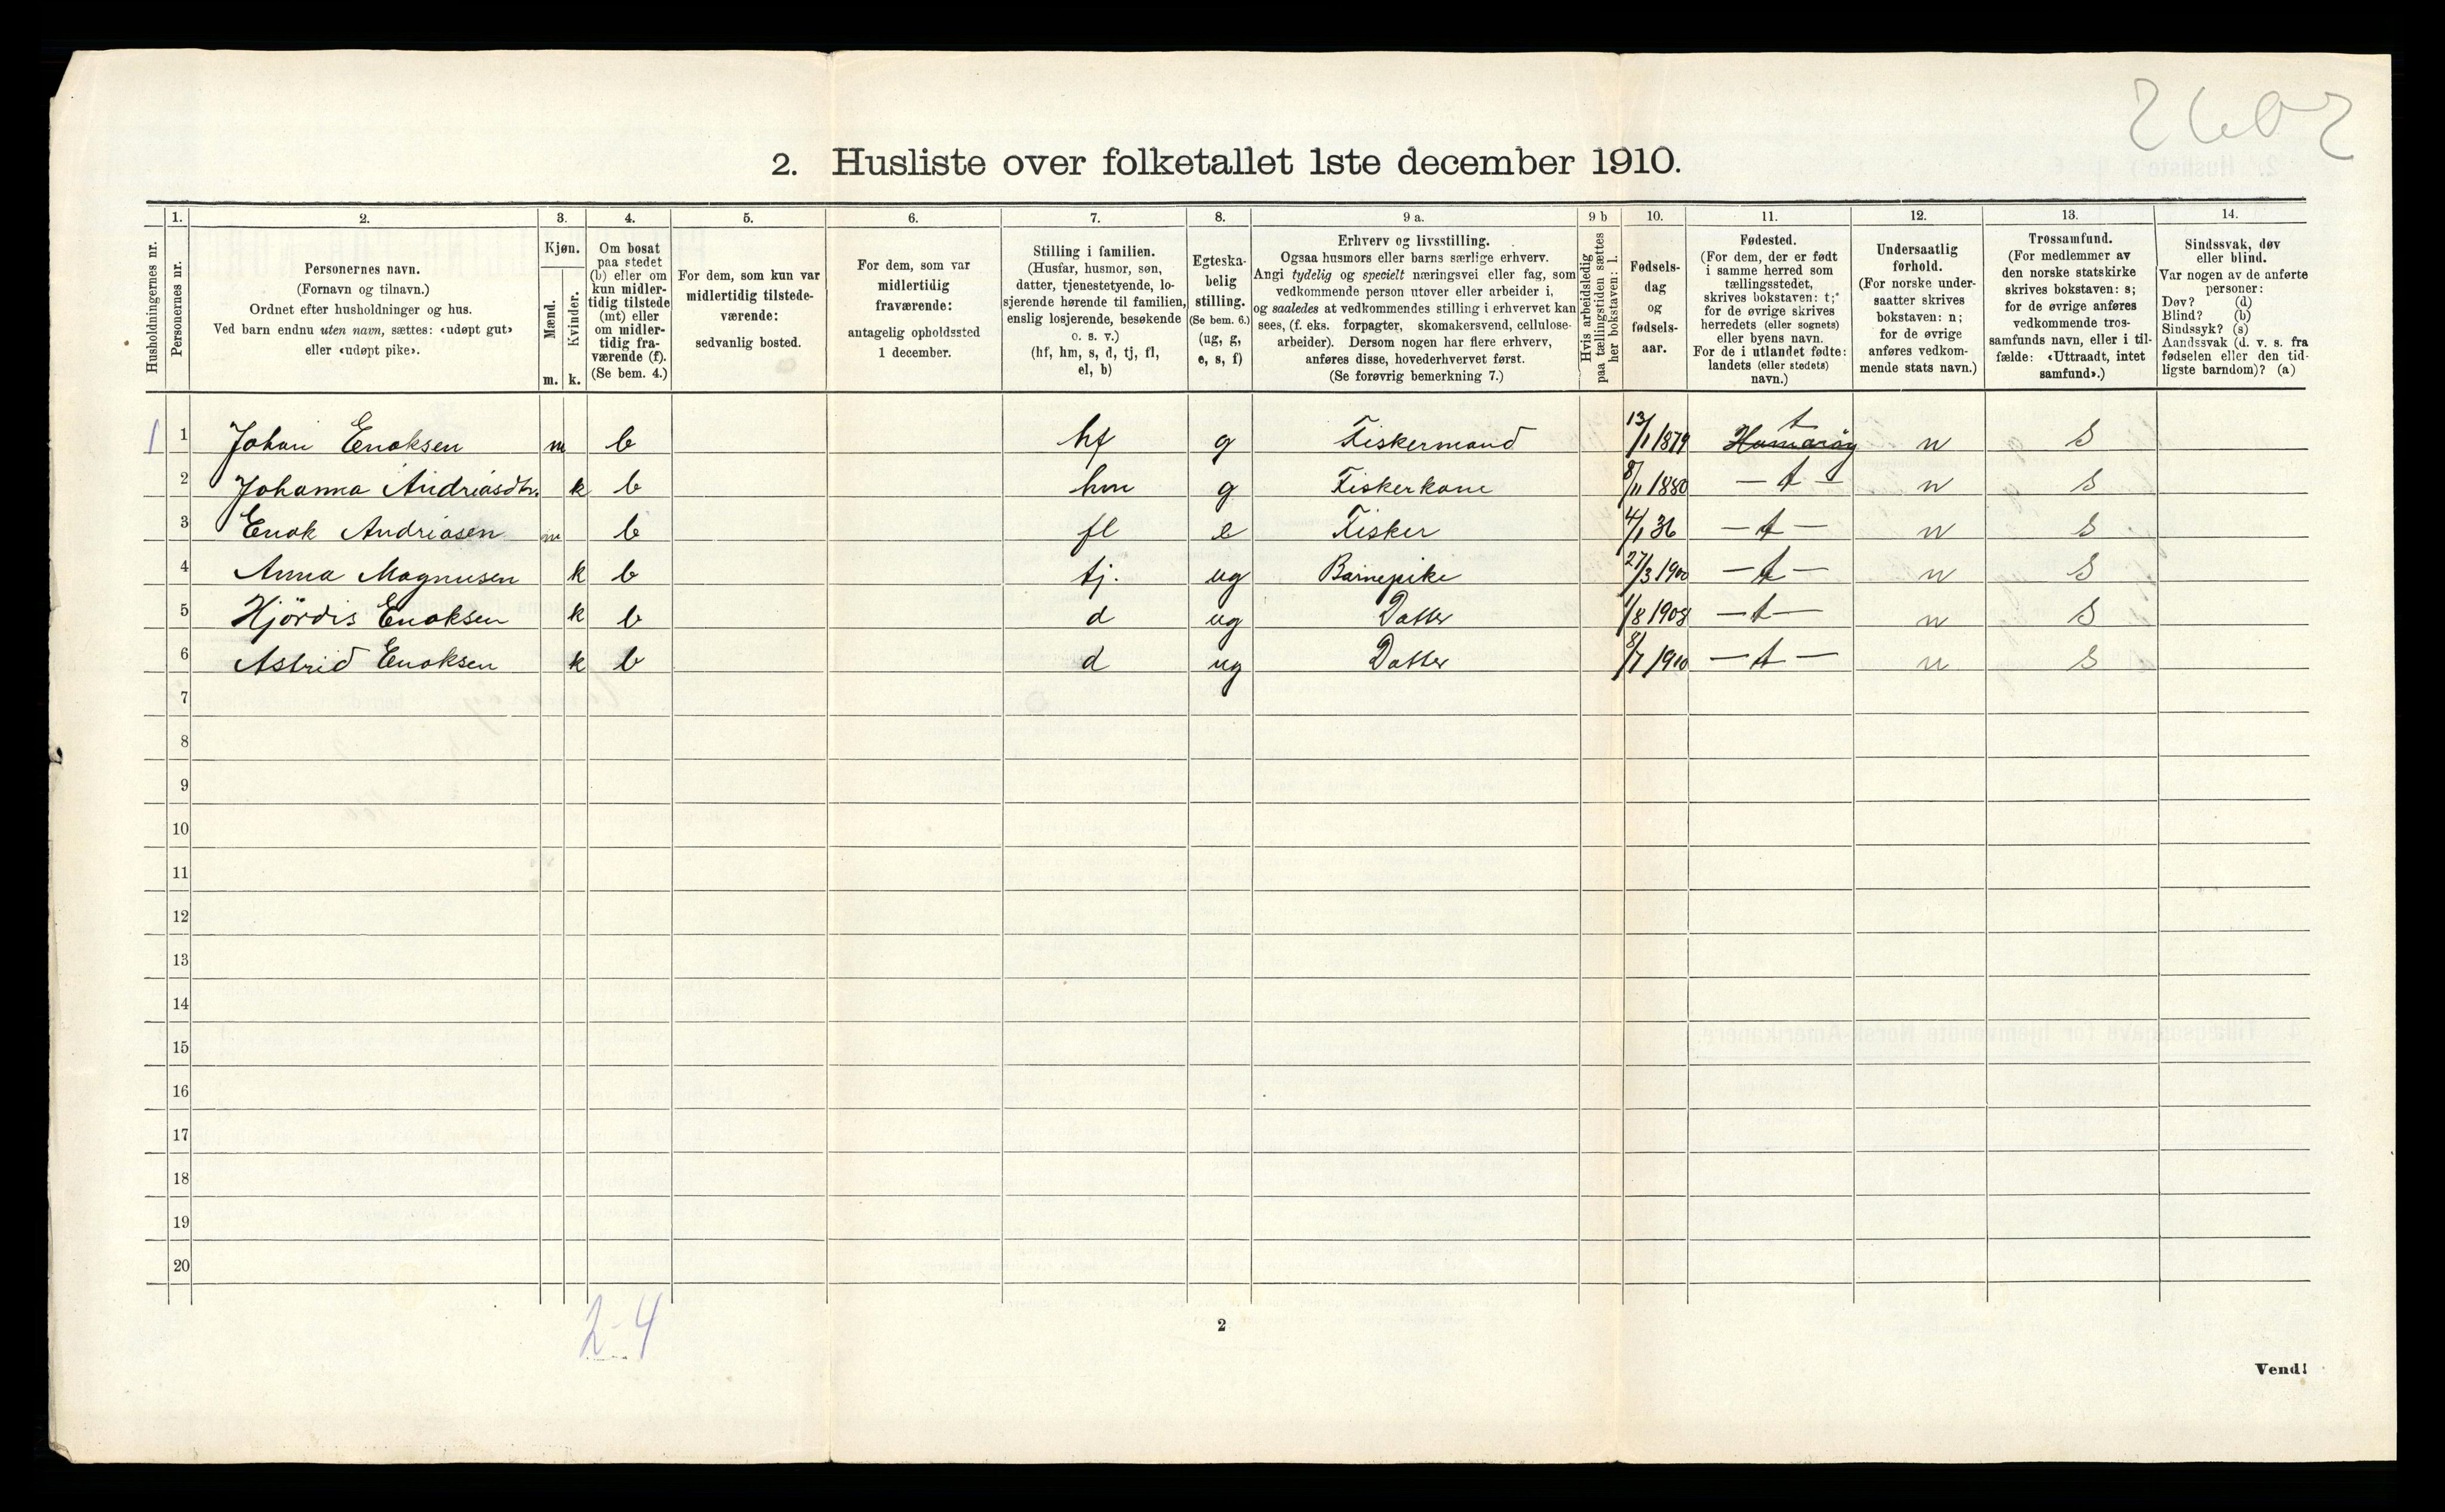 2602
2. Husliste over folketallet 1ste december 1910.
Husholdningernes nr.
1.
Personernes nr.
2.
Personernes navn.
(Fornavn og tilnavn.)
Ordnet efter husholdninger og hus.
Ved barn endnu uten navn, sættes: «udøpt gut»
eller «udøpt pike».
3.
Kjøn.
Mænd.
m.
Kvinder.
k.
4.
Om bosat
paa stedet
(b) eller om
kun midler-
tidig tilstede
(mt) eller
om midler-
tidig fra-
værende (f).
(Se bem. 4.)
5.
For dem, som kun var
midlertidig tilstede-
værende:
sedvanlig bosted.
6.
For dem, som var
midlertidig
fraværende:
antagelig opholdssted
1 december.
7.
Stilling i familien.
(Husfar, husmor, søn,
datter, tjenestetyende, lo-
sjerende hørende til familien,
enslig losjerende, besøkende
o. s. v.)
(hf, hm, s, d, tj, fl,
el, b)
8.
Egteska-
belig
stilling.
(Se bem. 6.)
(ug, g,
e, s, f)
9 a.
Erhverv og livsstilling.
Ogsaa husmors eller barns særlige erhverv.
Angi tydelig og specielt næringsvei eller fag, som
vedkommende person utøver eller arbeider i,
og saaledes at vedkommendes stilling i erhvervet kan
sees, (f. eks. forpagter, skomakersvend, cellulose-
arbeider). Dersom nogen har flere erhverv,
anføres disse, hovederhvervet først.
(Se forøvrig bemerkning 7.)
9 b
Hvis arbeidsledig
paa tællingstiden sættes
her bokstaven: l.
10.
Fødsels-
dag
og
fødsels-
aar.
11.
Fødested.
(For dem, der er født
i samme herred som
tællingsstedet,
skrives bokstaven: t;
for de øvrige skrives
herredets (eller sognets)
eller byens navn.
For de i utlandet fødte:
landets (eller stedets)
navn.)
12.
Undersaatlig
forhold.
(For norske under-
saatter skrives
bokstaven: n;
for de øvrige
anføres vedkom-
mende stats navn.)
13.
Trossamfund.
(For medlemmer av
den norske statskirke
skrives bokstaven: s;
for de øvrige anføres
vedkommende tros-
samfunds navn, eller i til-
fælde: «Uttraadt, intet
samfund».)
14.
Sindssvak, døv
eller blind.
Var nogen av de anførte
personer:
Døv? (d)
Blind? (b)
Sindssyk? (s)
Aandssvak (d. v. s. fra
fødselen eller den tid-
ligste barndom)? (a)
1 1 Johan Enoksen m b hf g Fiskermand 13/1 1879 Hamarøy t n S
2 Johanna Andriasdtr. k b hm g Fiskerkone 8/11 1880 — t — n S
3 Enok Andriasen m b fl e Fisker 4/1 36 — t — n S
4 Anna Magnusen k b tj. ug Barnepike 27/3 1900 — t — n S
5 Hjördis Enoksen k b d ug Datter 1/8 1908 — t — n S
6 Astrid Enoksen k b d ug Datter 8/7 1910 — t — n S
7
8
9
10
11
12
13
14
15
16
17
18
19
20
2-4
2
Vend!